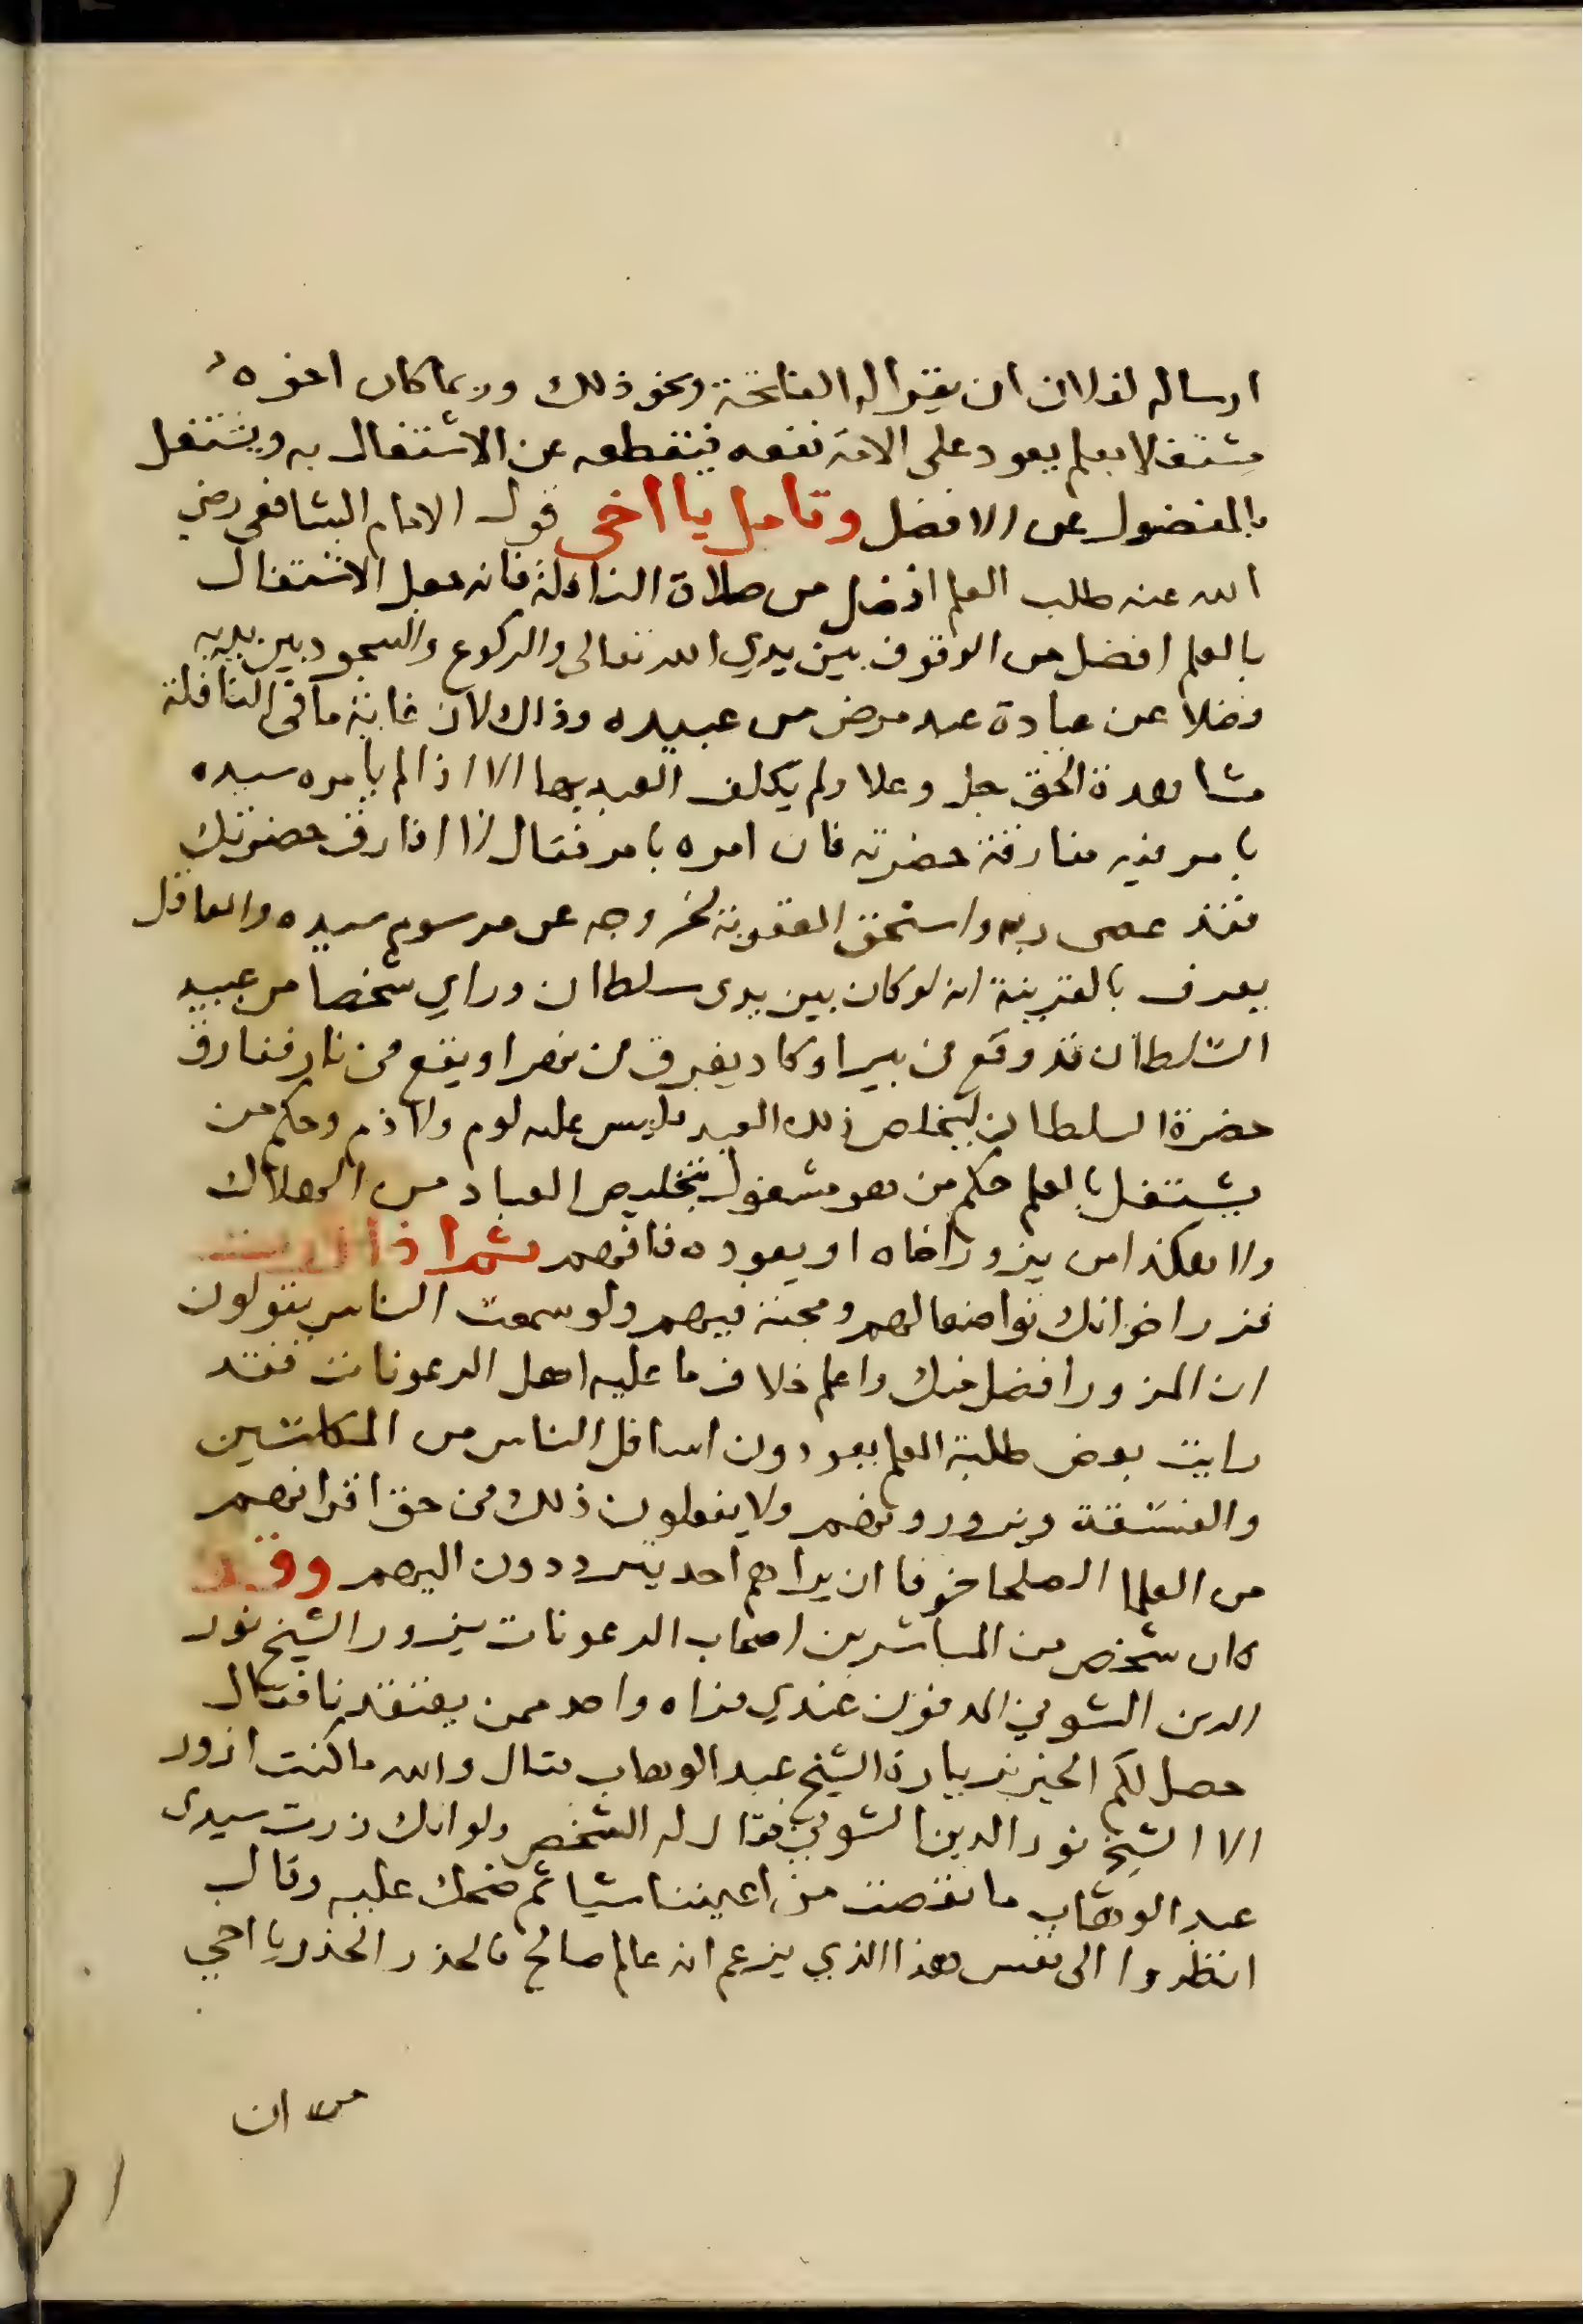 ارساله لفلان ان يقرا له الفاتحة ونحو ذلك وربما كان اخوه
مشتغلا بعلم يعود على الامة نفعه فيقطعه عن الاشتغال به ويشتغل
بالمفضول عن الافضل وتامل يا اخى قول الامام الشافعى رضي
الله عنه طلب العلم افضل من صلاة النافلة فانه جعل الاشتغال
بالعلم افضل من الوقوف بين يدي الله تعالى والركوع والسجود بين يديه
فضلا عن عيادة عبد مرض من عبيده وذلك لان غاية ما فى النافلة
مشاهدة الحق جل وعلا ولم يكلف العبد بها الا اذا لم يامره سيده
بامر فيه مفارقة حضرته فان امره بامر فقال لا افارق حضرتك
فقد عصى ربه واستحق العقوبة لخروجه عن مرسوم سيده والعاقل
يعرف بالقرينة انه لو كان بين يدى سلطان وراي شخصا من عبيد
السلطان قد وقع فى بير او كاد يغرق فى نهر او يقع فى نار ففارق
حضرة السلطان ليخلص ذلك العبد فليس عليه لوم ولا ذم وحكم من
يشتغل بالعلم حكم من هو مشغول بتخليص العباد من الهلاك
ولا هكذا من يزور اخاه او يعوده فافهم ثم اذا
فزر اخوانك تواضعا لهم ومحبة فيهم ولو سمعت الناس يقولون
ان المزور افضل منك واعلم خلاف ما عليه اهل الرعونات فقد
رايت بعض طلبة العلم يعودون اسافل الناس من المكاسين
والفسقة ويزورونهم ولا يفعلون ذلك فى حق اقرانهم
من العلما الصلحا خوفا ان يراهم احد يترددون اليهم وقد
كان شخص من المباشرين اصحاب الرعونات يزور الشيخ نور
الدين الشوني المدفون عندي فراه واحد ممن يعتقدنا فقال
حصل لكم الخير بزيارة الشيخ عبد الوهاب فقال والله ما كنت ازور
الا الشيخ نور الدين الشوني فقال له الشخص ولو انك زرت سيدى
عبد الوهاب ما نقصت من اعيننا شيا ثم ضحك عليه وقال
انظروا الى نفس هذا الذي يزعم انه عالم صالح فالحذر الحذر يا اخي
من ان